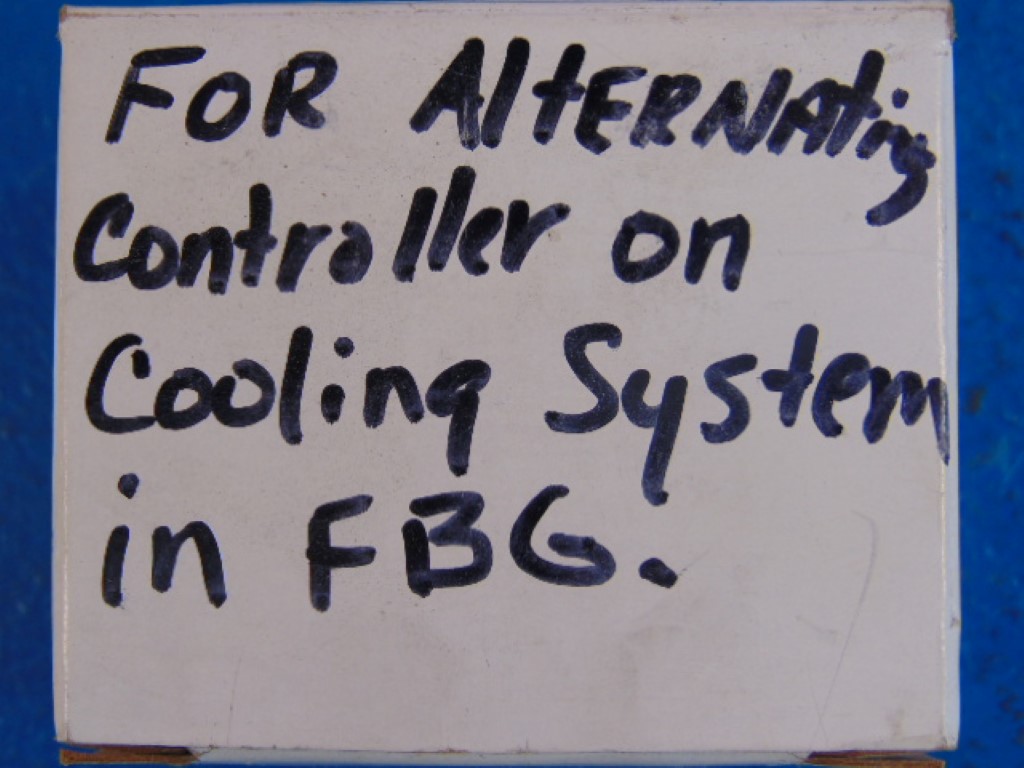 FOR AltERNAting
Controller on
Cooling System
in FBG.